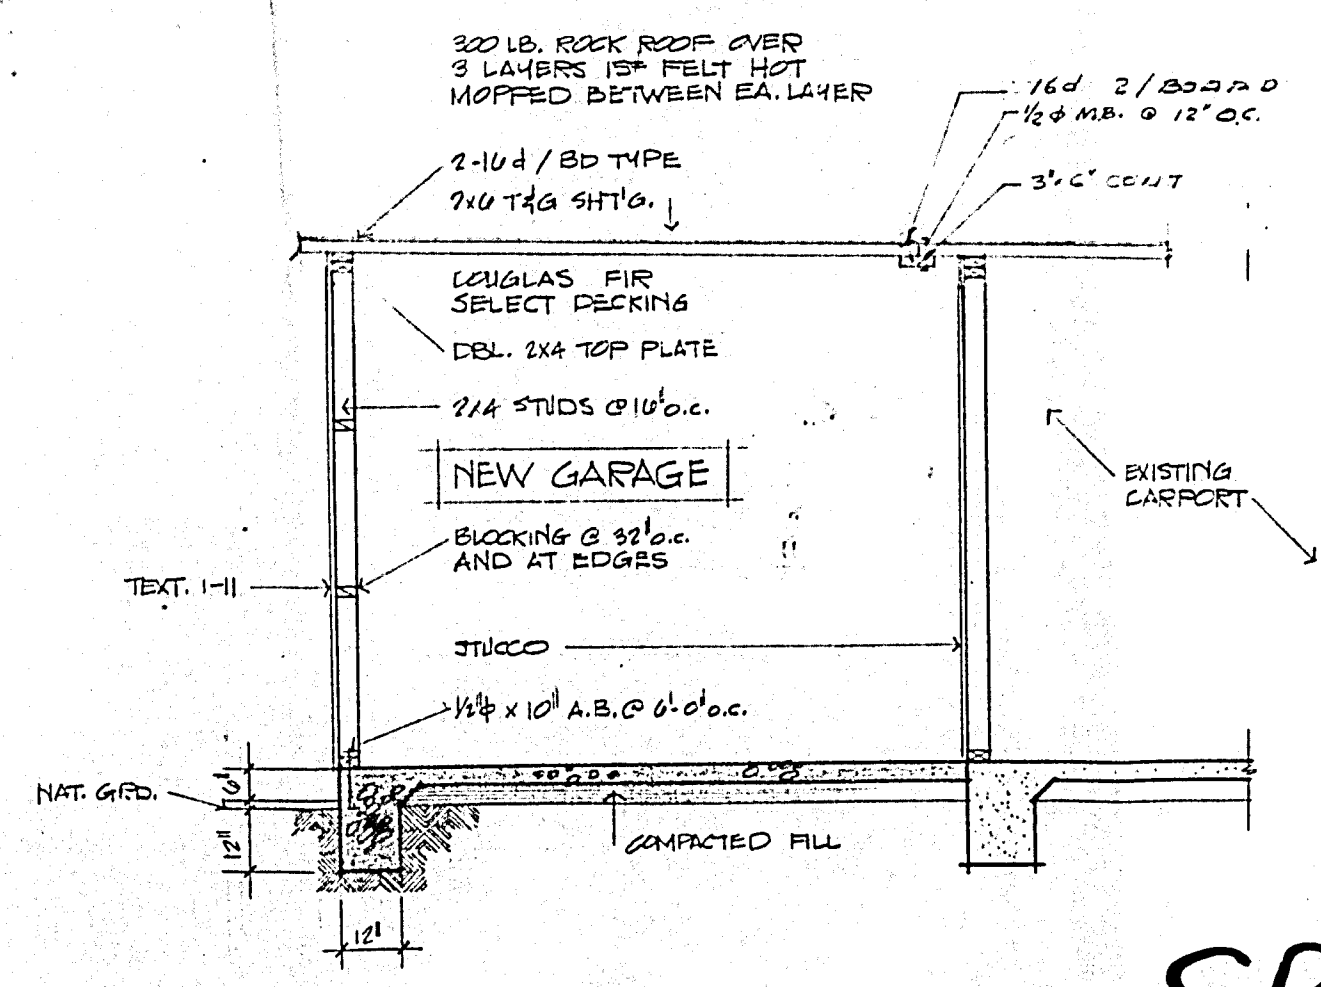 300 LB. ROCK ROOF OVER
3 LAYERS 15# FELT HOT
MOPPED BETWEEN EA. LAYER
16d 2/BOARD
1/2 φ M.B. @ 12" O.C.
2-16d / BD TYPE
2x6 T&G SHT'G.
CONT
DOUGLAS FIR
SELECT DECKING
DBL. 2X4 TOP PLATE
2X4 STUDS @ 16" o.c.
NEW GARAGE
EXISTING
CARPORT
BLOCKING @ 32" o.c.
AND AT EDGES
TEXT. 1-11
STUCCO
1/2"φ x 10" A.B. @ 6'-0" o.c.
NAT. GRD.
6"
12"
COMPACTED FILL
12"